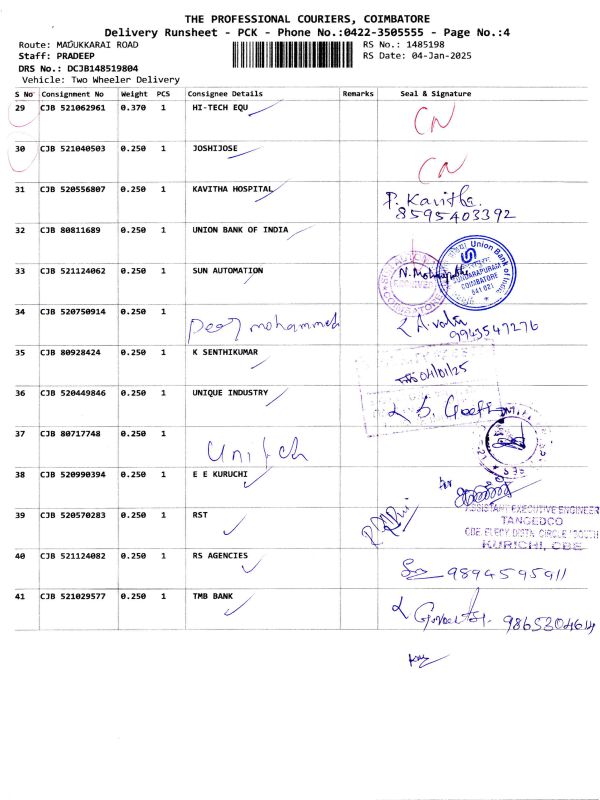 THE PROFESSIONAL COURIERS, COIMBATORE
Delivery Runsheet - PCK - Phone No.:0422-3505555 - Page No.:4
Route: MADUKKARAI ROAD
RS No.: 1485198
Staff: PRADEEP
RS Date: 04-Jan-2025
DRS No.: DCJB148519804
Vehicle: Two Wheeler Delivery
S No Consignment No Weight PCS Consignee Details Remarks Seal & Signature
29 CJB 521062961 0.370 1 HI-TECH EQU CN
30 CJB 521040503 0.250 1 JOSHIJOSE CN
31 CJB 520556807 0.250 1 KAVITHA HOSPITAL P. Kavitha
8595403392
32 CJB 80811689 0.250 1 UNION BANK OF INDIA
Union Bank of India
SUNDARAPURAM
COIMBATORE
641 021
33 CJB 521124062 0.250 1 SUN AUTOMATION
34 CJB 520750914 0.250 1 Peer mohammed
9943547276
35 CJB 80928424 0.250 1 K SENTHIKUMAR 04/01/25
36 CJB 520449846 0.250 1 UNIQUE INDUSTRY
37 CJB 80717748 0.250 1 Unitech
38 CJB 520990394 0.250 1 E E KURUCHI for
ASSISTANT EXECUTIVE ENGINEER
TANGEDCO
CBE ELECY DISTN. CIRCLE / SOUTH
KURICHI, CBE
39 CJB 520570283 0.250 1 RST
40 CJB 521124082 0.250 1 RS AGENCIES 9894595911
41 CJB 521029577 0.250 1 TMB BANK 9865304614